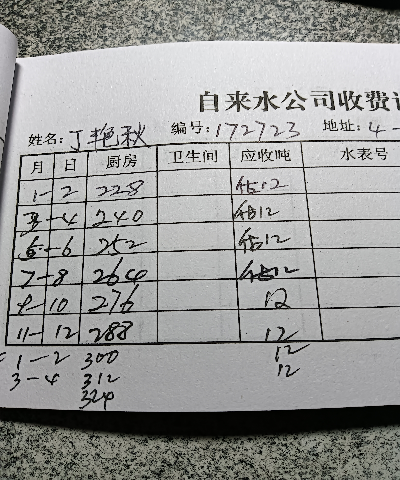 自来水公司收费
姓名:丁艳秋 编号:172723 地址:4-
月 日 厨房 卫生间 应收吨 水表号
1-2 228 估12
3-4 240 估12
5-6 252 估12
7-8 264 估12
9-10 276 12
11-12 288 12
1-2 300 12
3-4 312 12
324